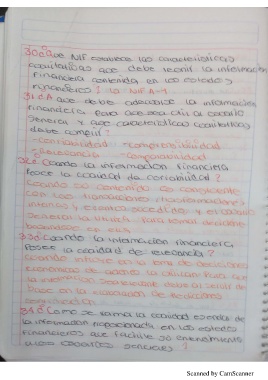 30.¿Que NIF establece las características
cualitativas que debe reunir la información
financiera contenida en los estados
financieros? La NIF A-4
31.¿A que debe adecuarse la información
financiera para que sea útil al usuario
general y que características cualitativas
debe cumplir?
-confiabilidad -comprensibilidad
-Relevancia -comparabilidad
32.¿Cuando la información financiera
posee la cualidad de confiabilidad?
Cuando su contenido es congruente
con las transacciones, transformaciones
internas y eventos sucedidos y el usuario
general la utiliza para tomar decisiones
basandose en ella
33.¿Cuando la información financiera
posee la cualidad de relevancia?
Cuando influye en la toma de decisiones
económicas de quienes la utilizan para que
la información sea relevante debe
en la elaboración de
34.¿Como se llama la cualidad esencial de
la información proporcionada en los estados
financieros que facilita su entendimiento
a los usuarios generales?
Scanned by CamScanner